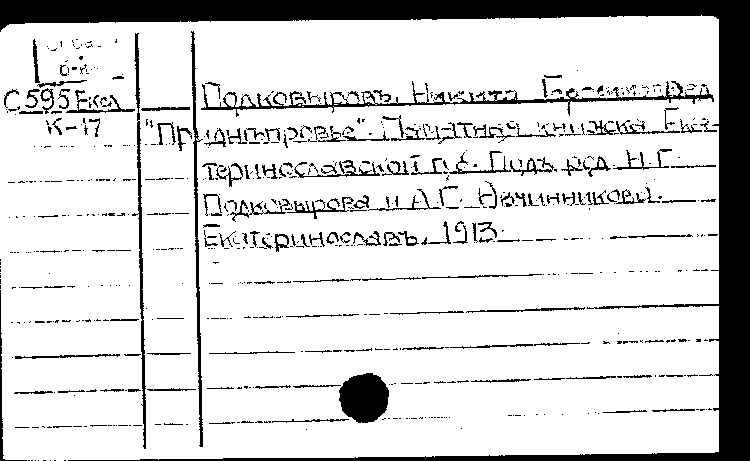 б-н
С595 Ексл
К-17
Полковыровъ, Никита Герасимов Ред.
"Приднѣпровье". Памятная книжка Ека-
теринославской г.с. Подъ ред. Н.Г.
Полковырова и А.Г. Овчинникова.
Екатеринославъ, 1913.